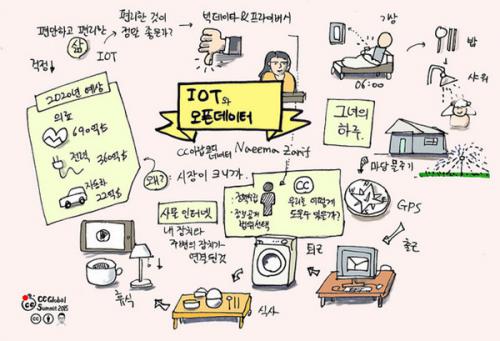 편안하고 편리한
삶
IOT
걱정↓
편리한 것이
정말 좋은가?
빅데이터&프라이버시
기상
06:00
밥
샤워
2020년 예상
의료
690억$
전력
360억$
자동차
22억$
IOT와
오픈데이터
CC아랍코디
네이터 Naeema Zarif
그녀의
하루.
왜?: 시장이 크니까.
마당 물주기
GPS
사물 인터넷
내 장치와
주변의 장치가
연결된것
범위선택
CC
우리는 어떻게
도울수 있을까?
출근
퇴근
식사
휴식
CC Global
Summit 2015